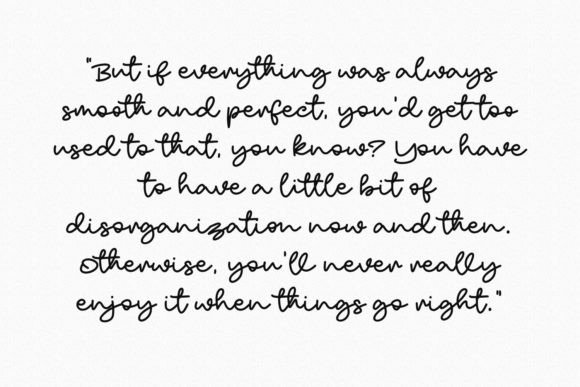 "But if everything was always
smooth and perfect, you'd get too
used to that, you know? You have
to have a little bit of
disorganization now and then.
Otherwise, you'll never really
enjoy it when things go right."